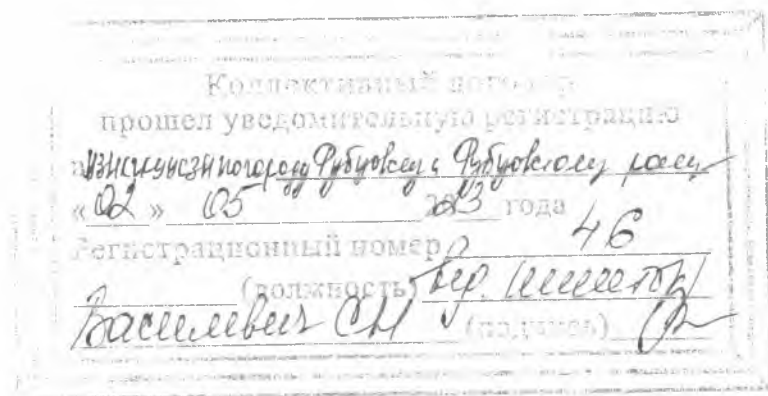 Коллективный договор
прошел уведомительную регистрацию
по городу Рубцовску и Рубцовскому
«02» 05 2013 года
Регистрационный номер 46
(должность)
Василевич СН (подпись)